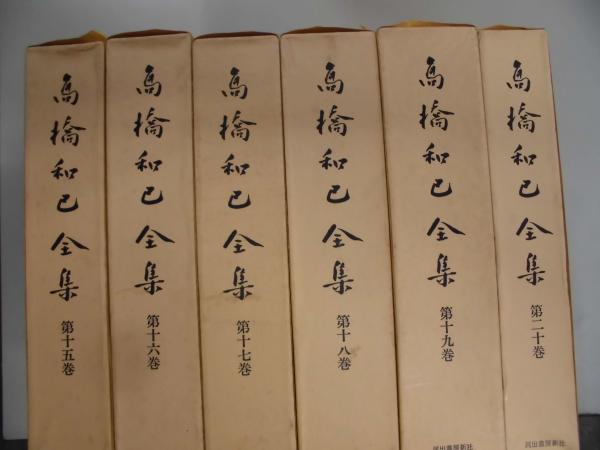 高橋和巳全集
第十五巻
高橋和巳全集
第十六巻
高橋和巳全集
第十七巻
高橋和巳全集
第十八巻
高橋和巳全集
第十九巻
河出書房新社
高橋和巳全集
第二十巻
河出書房新社